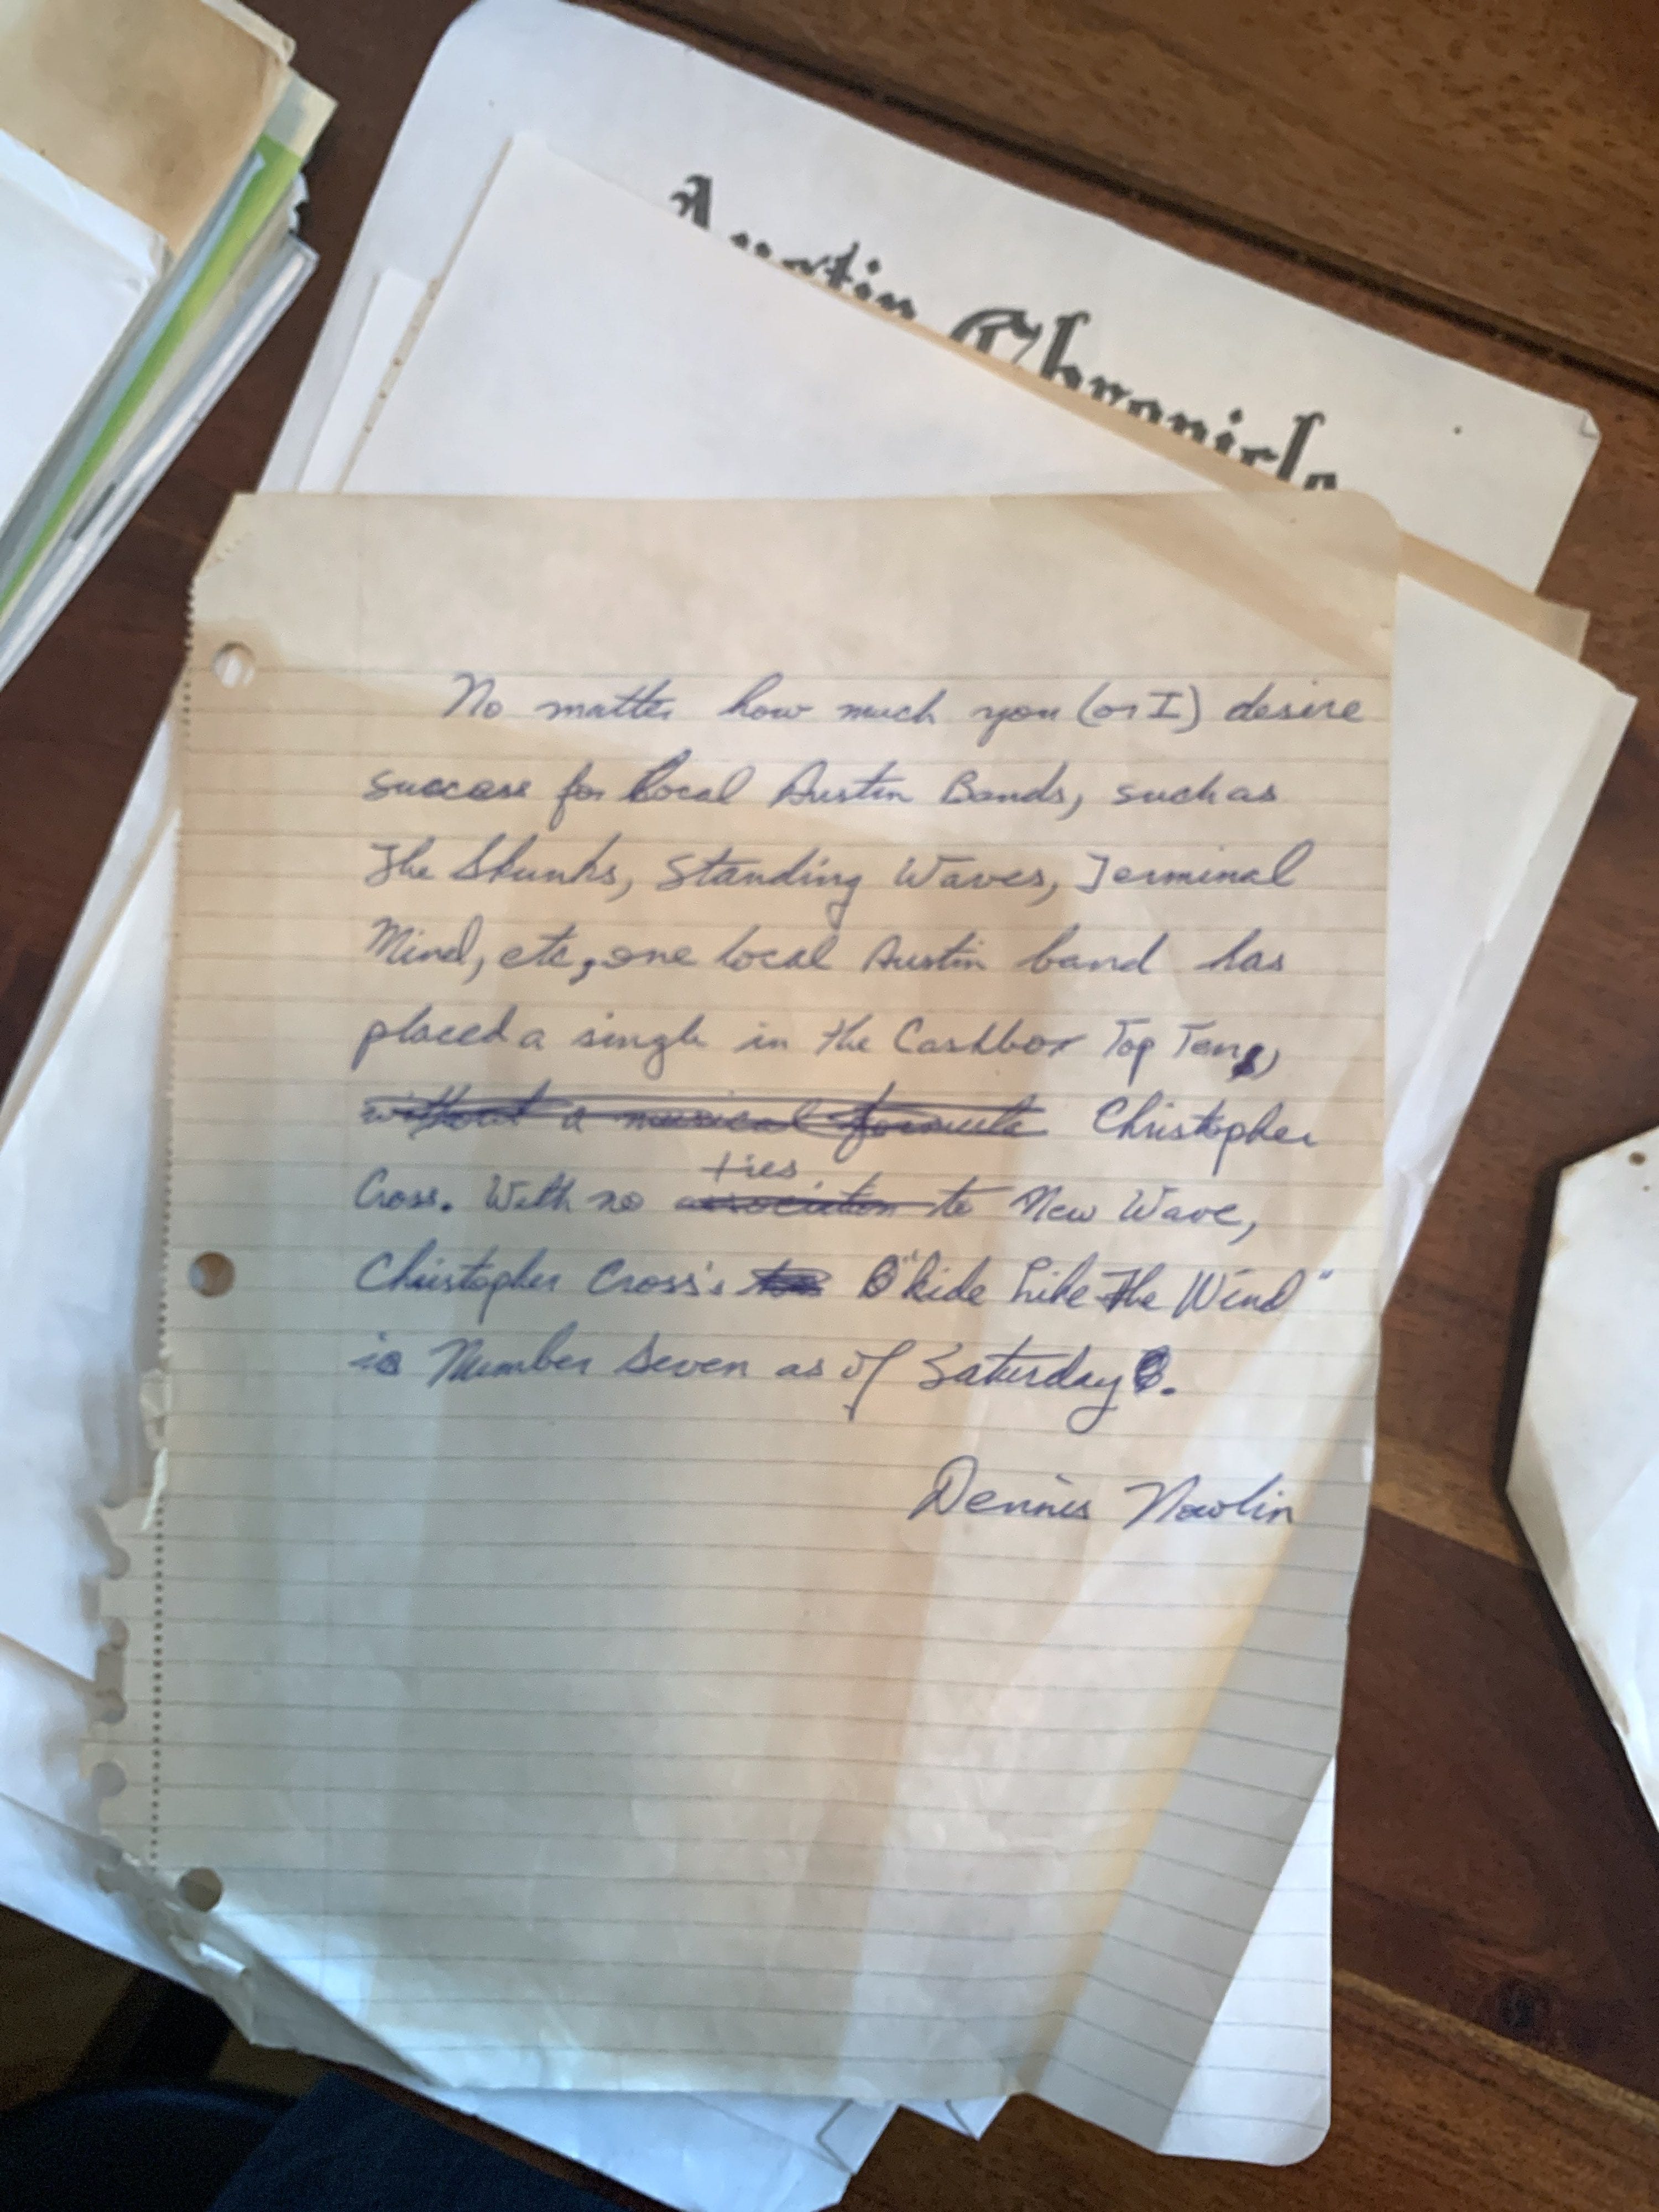 Austin Chronicle
No matter how much you (or I) desire
success for local Austin Bands, such as
The Skunks, Standing Waves, Terminal
Mind, etc, one local Austin band has
placed a single in the Cashbox Top Ten,
without a musical formula Christopher
ties
Cross. With no association to New Wave,
Christopher Cross's "Ride Like The Wind"
is Number Seven as of Saturday.
Dennis Nowlin